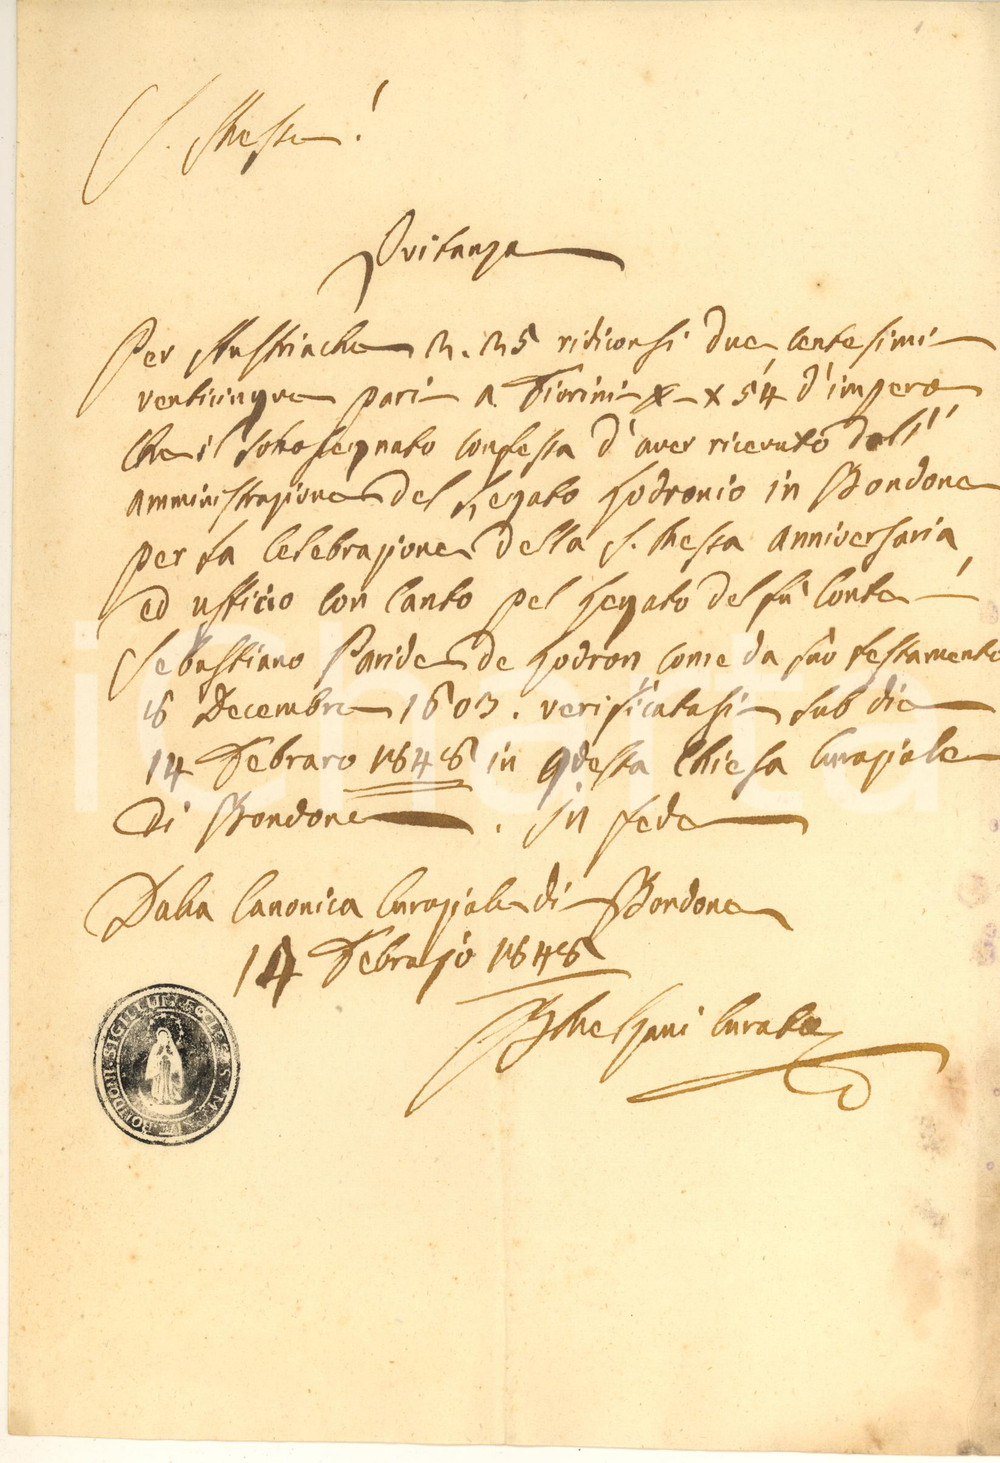 S. Messa!
Quitanza
Per Austriache 2.25 ridiconsi due, centesimi
venticinque pari a Fiorini x 54 d'impero
che il sottosegnato confessa d'aver ricevuto dall'
amministrazione del Legato Lodronio in Bondone
per la celebrazione della S. Messa anniversaria,
ed ufficio con canto pel Legato del fu Conte
Sebastiano Paride de Lodron come da suo testamento
8 Decembre 1603. verificatasi sub die
14 Febraro 1848 in questa Chiesa Curaziale
di Bondone. In fede
Dalla Canonica Curaziale di Bondone
14 Febrajo 1848
Curato
SIGILLUM ECCLE S. M. DE BONDONI